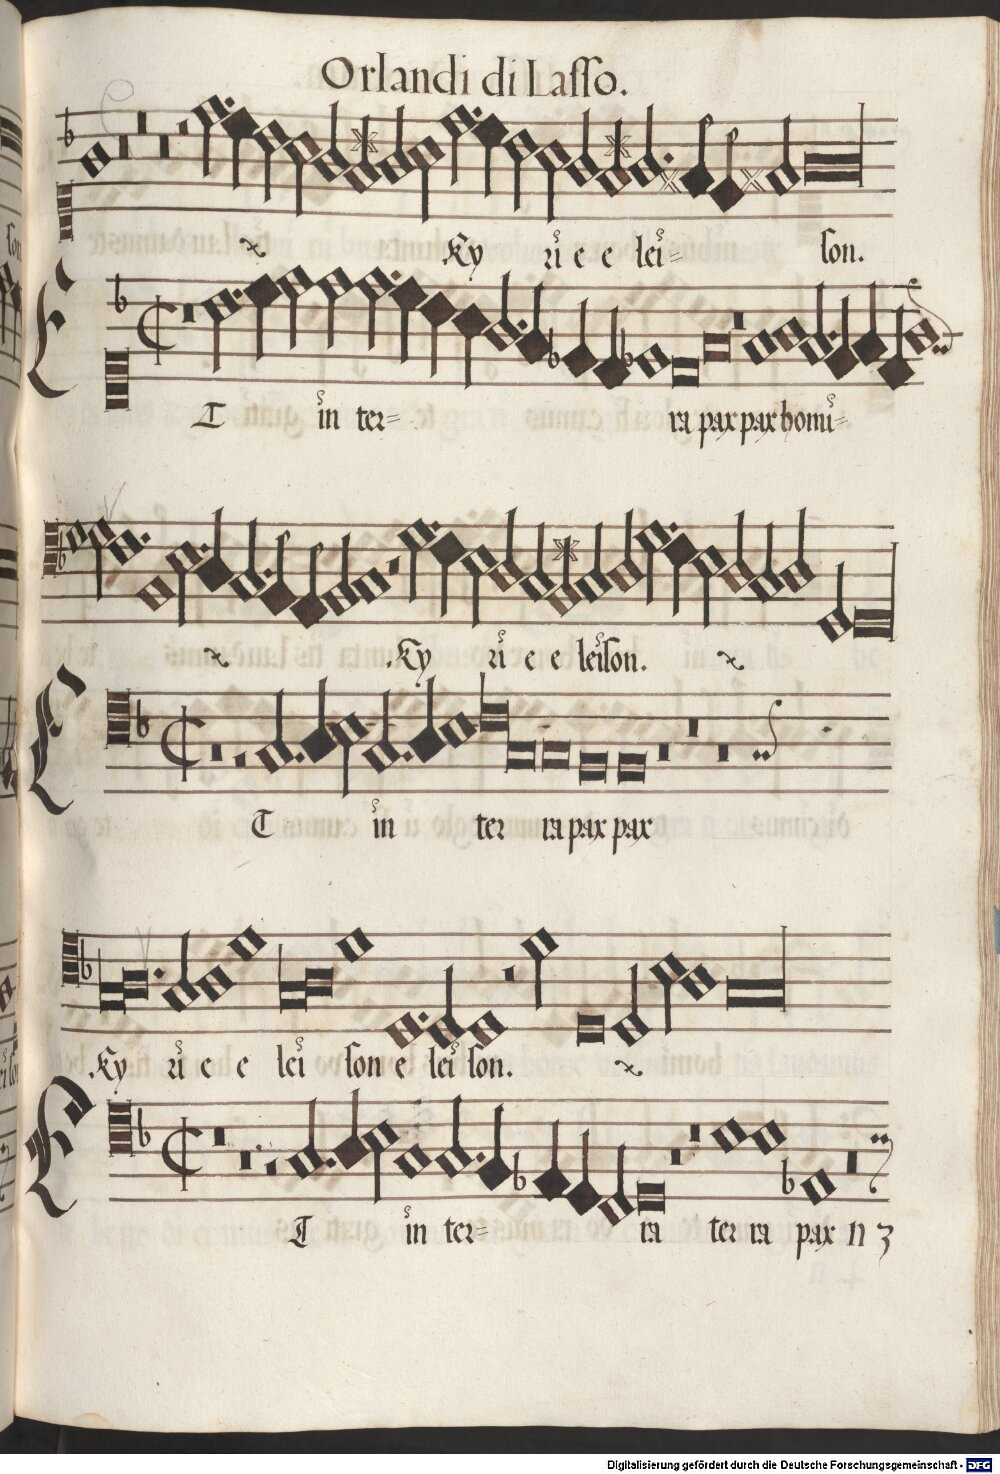 Orlandi di Lasso.
Ky ri e e lei= son.
ET in ter= ra pax pax homi=
Ky ri e e leison.
ET in ter ra pax pax
Ky ri e e lei son e lei son.
ET in ter= ra ter ra pax n 3
Digitalisierung gefördert durch die Deutsche Forschungsgemeinschaft - DFG